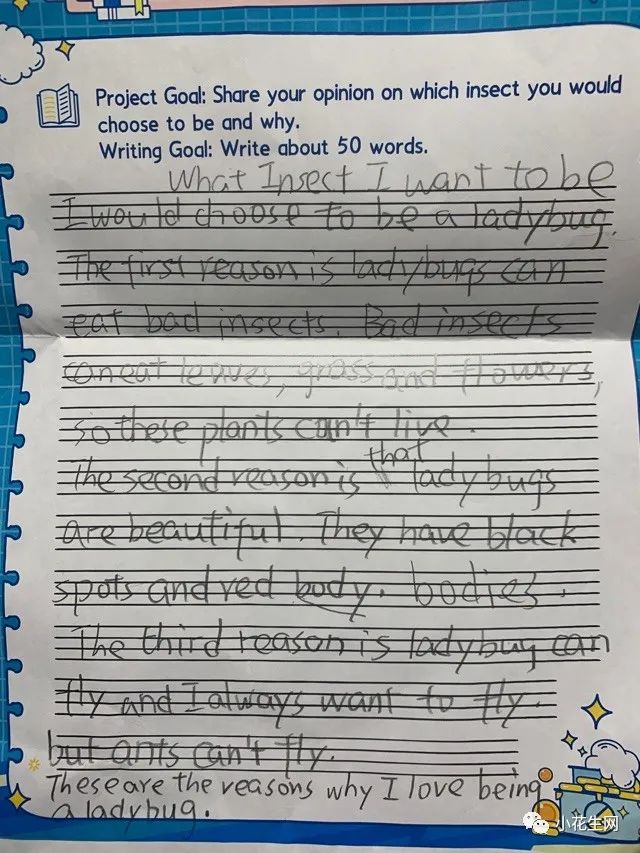 Project Goal: Share your opinion on which insect you would
choose to be and why.
Writing Goal: Write about 50 words.
What Insect I want to be
I would choose to be a ladybug.
The first reason is ladybugs can
eat bad insects. Bad insects
can eat leaves, grass and flowers,
so these plants can't live.
The second reason is that ladybugs
are beautiful. They have black
spots and red body. bodies.
The third reason is ladybug can
fly and I always want to fly.
but ants can't fly.
These are the reasons why I love being
a ladybug.
小花生网